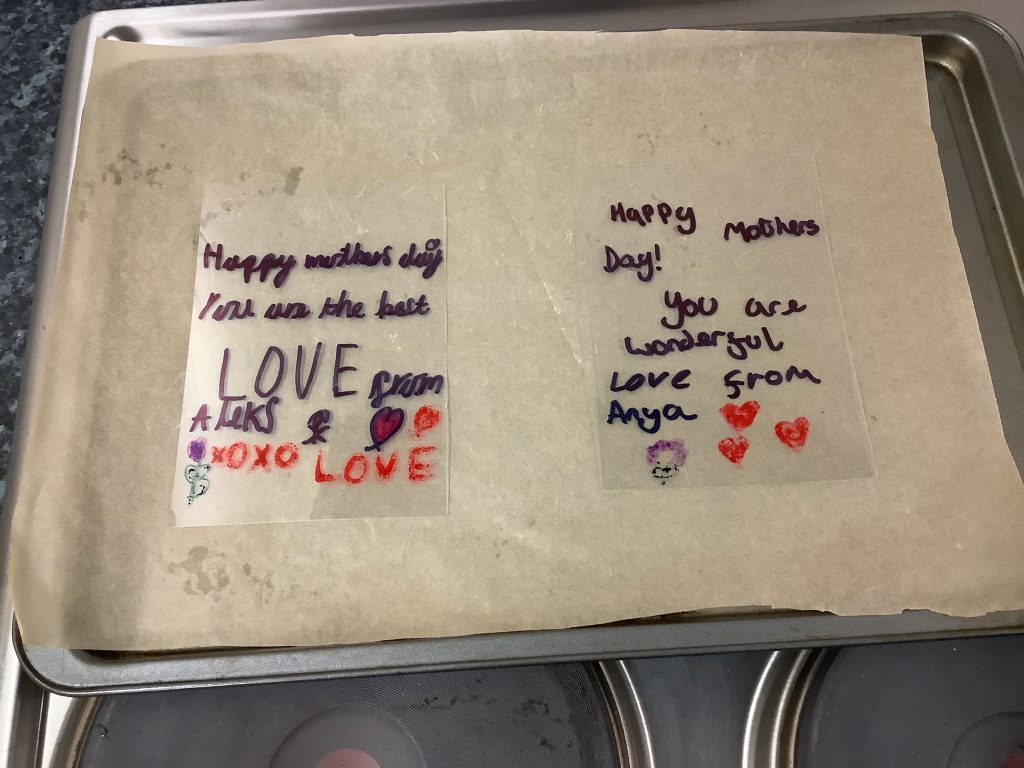 Happy mothers day
You are the best
LOVE from
Aleks
XOXO LOVE
Happy Mothers
Day!
You are
wonderful
Love from
Anya